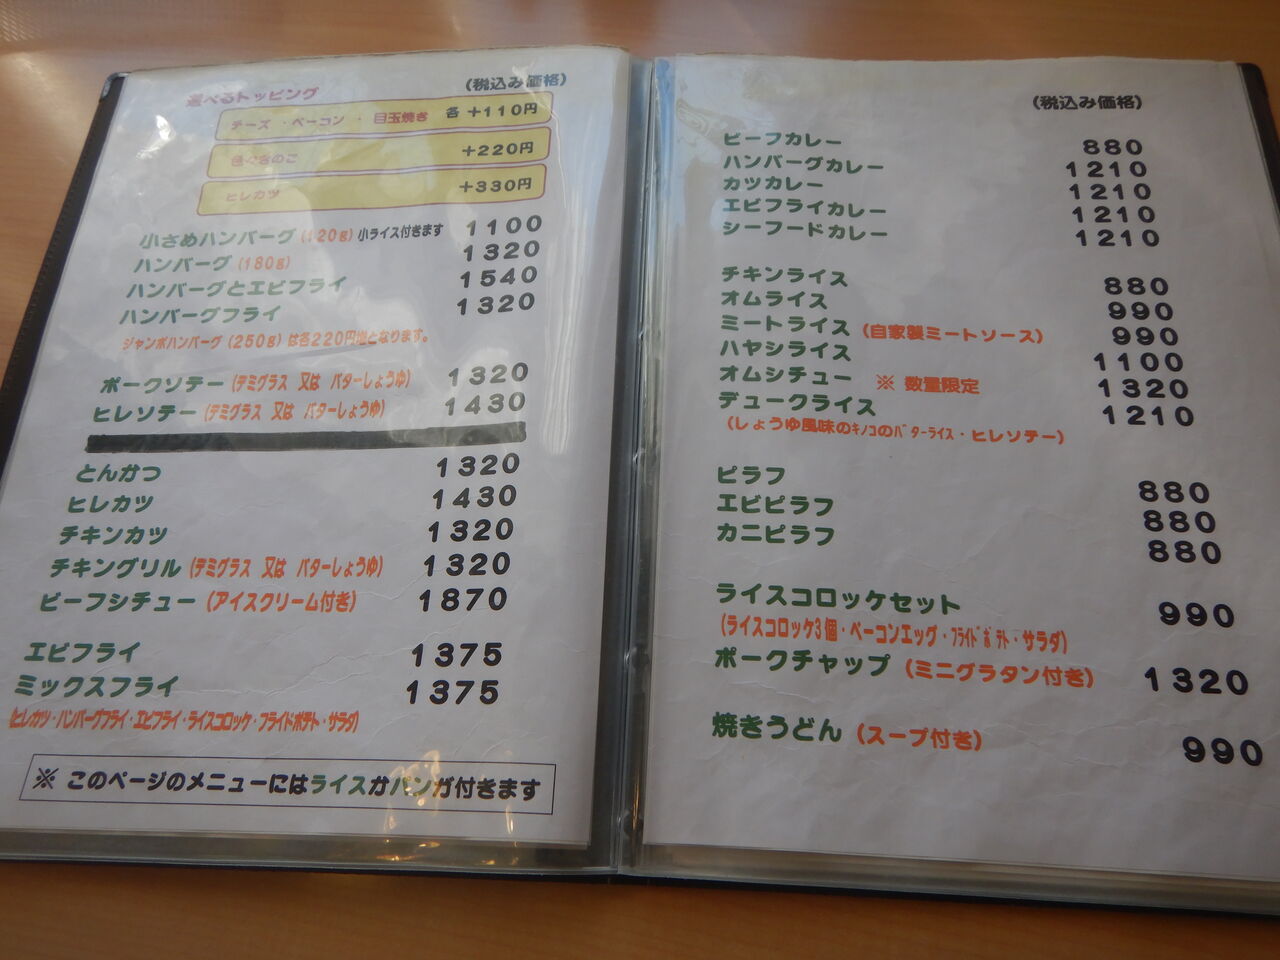 選べるトッピング (税込み価格)
チーズ ・ベーコン ・ 目玉焼き 各 +110円
色々きのこ +220円
ヒレカツ +330円
小さめハンバーグ (120g) 小ライス付きます 1100
ハンバーグ (180g) 1320
ハンバーグとエビフライ 1540
ハンバーグフライ 1320
ジャンボハンバーグ (250g) は各220円増となります。
ポークソテー (デミグラス 又は バターしょうゆ) 1320
ヒレソテー (デミグラス 又は バターしょうゆ) 1430
とんかつ 1320
ヒレカツ 1430
チキンカツ 1320
チキングリル (デミグラス 又は バターしょうゆ) 1320
ビーフシチュー (アイスクリーム付き) 1870
エビフライ 1375
ミックスフライ 1375
(ヒレカツ・ハンバーグフライ・エビフライ・ライスコロッケ・フライドポテト・サラダ)
※ このページのメニューにはライスかパンが付きます
(税込み価格)
ビーフカレー 880
ハンバーグカレー 1210
カツカレー 1210
エビフライカレー 1210
シーフードカレー 1210
チキンライス 880
オムライス 990
ミートライス (自家製ミートソース) 990
ハヤシライス 1100
オムシチュー ※ 数量限定 1320
デュークライス 1210
(しょうゆ風味のキノコのバターライス・ヒレソテー)
ピラフ 880
エビピラフ 880
カニピラフ 880
ライスコロッケセット 990
(ライスコロッケ3個・ベーコンエッグ・フライドポテト・サラダ)
ポークチャップ (ミニグラタン付き) 1320
焼きうどん (スープ付き) 990